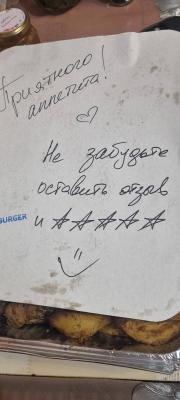 Приятного
аппетита!
Не забудьте
оставить отзыв
BURGER
и ☆☆☆☆☆